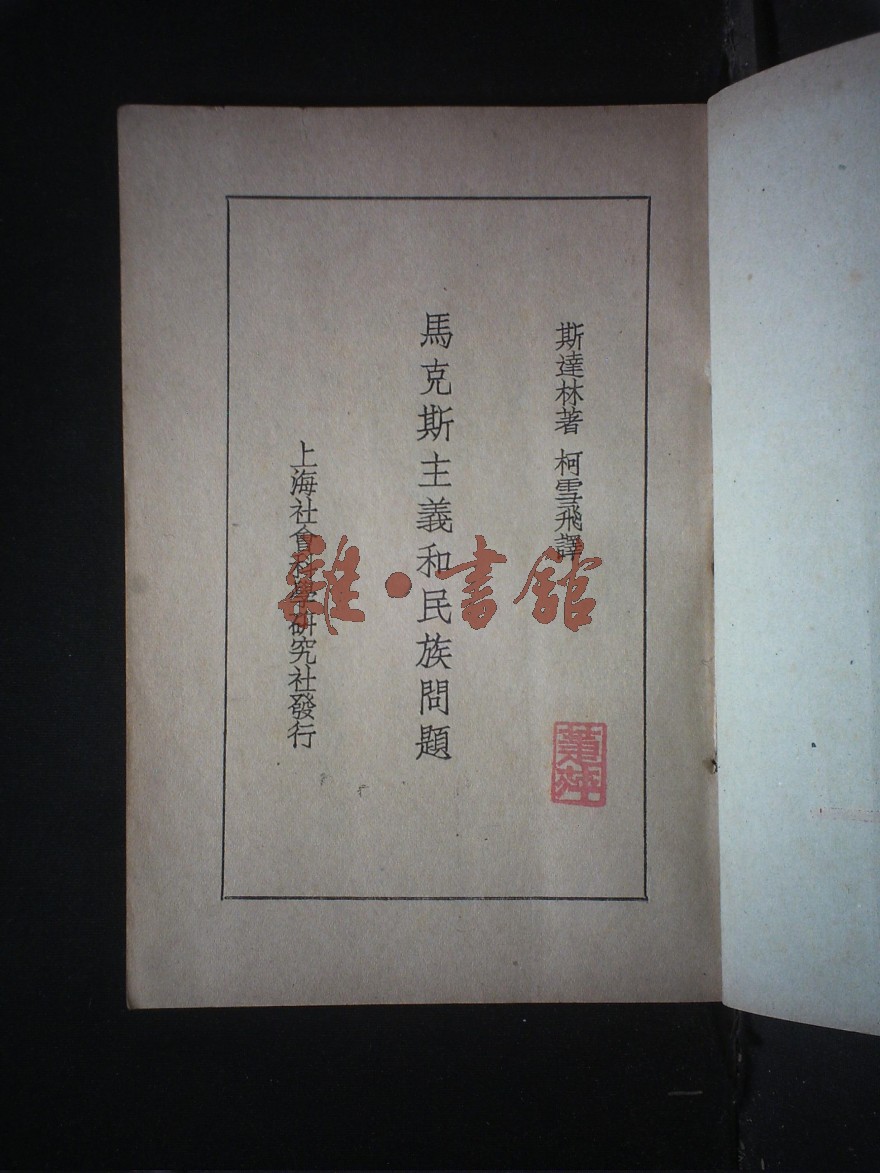 斯達林著 柯雪飛譯
馬克斯主義和民族問題
上海社會科學研究社發行
雜·書館